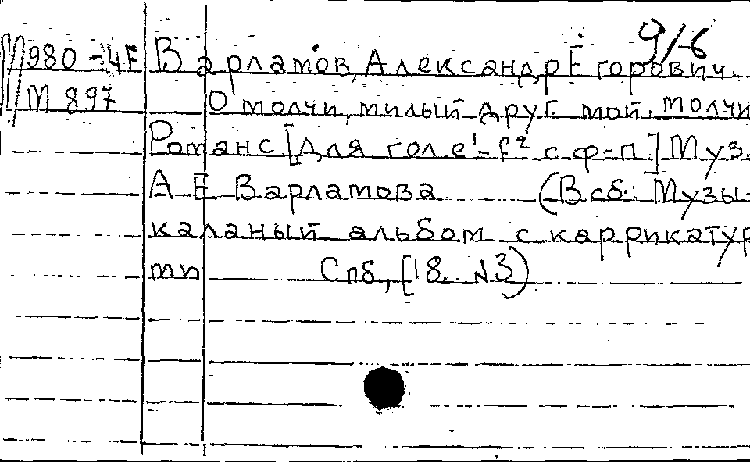 9/-6
М980-4Е Варламов, Александр Егорович.
М 897 О молчи, милый друг мой, молчи
Романс [Для гол. e¹-f² с ф-п.] Муз.
А Е Варламова (В сб: Музы-
каланый альбом с каррикатур
ми Спб, [18.. N3)